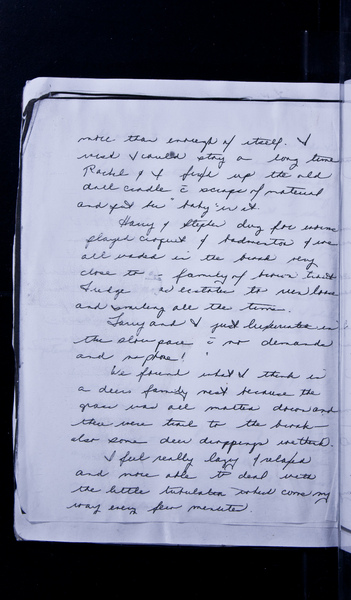 more than enough of itself. I
wish I could stay a long time
Rachel & I fixed up the old
doll cradle c̄ scraps of material
and put her "baby" in it.
Harry & Stephen dug for worms
played croquet & badminton & we
all waded in the brook very
close to a family of brown trout
Fudge is ecstatic to run loose
and smiling all the time.
Larry and I just luxuriate in
the slow pace c̄ no demands
and no phone!
We found what I think is
a deer family nest because the
grass was all matted down and
there were trails to the brook -
also some deer droppings
I feel really lazy & relaxed
and more able to deal with
the little tribulation which come my
way every few minutes.